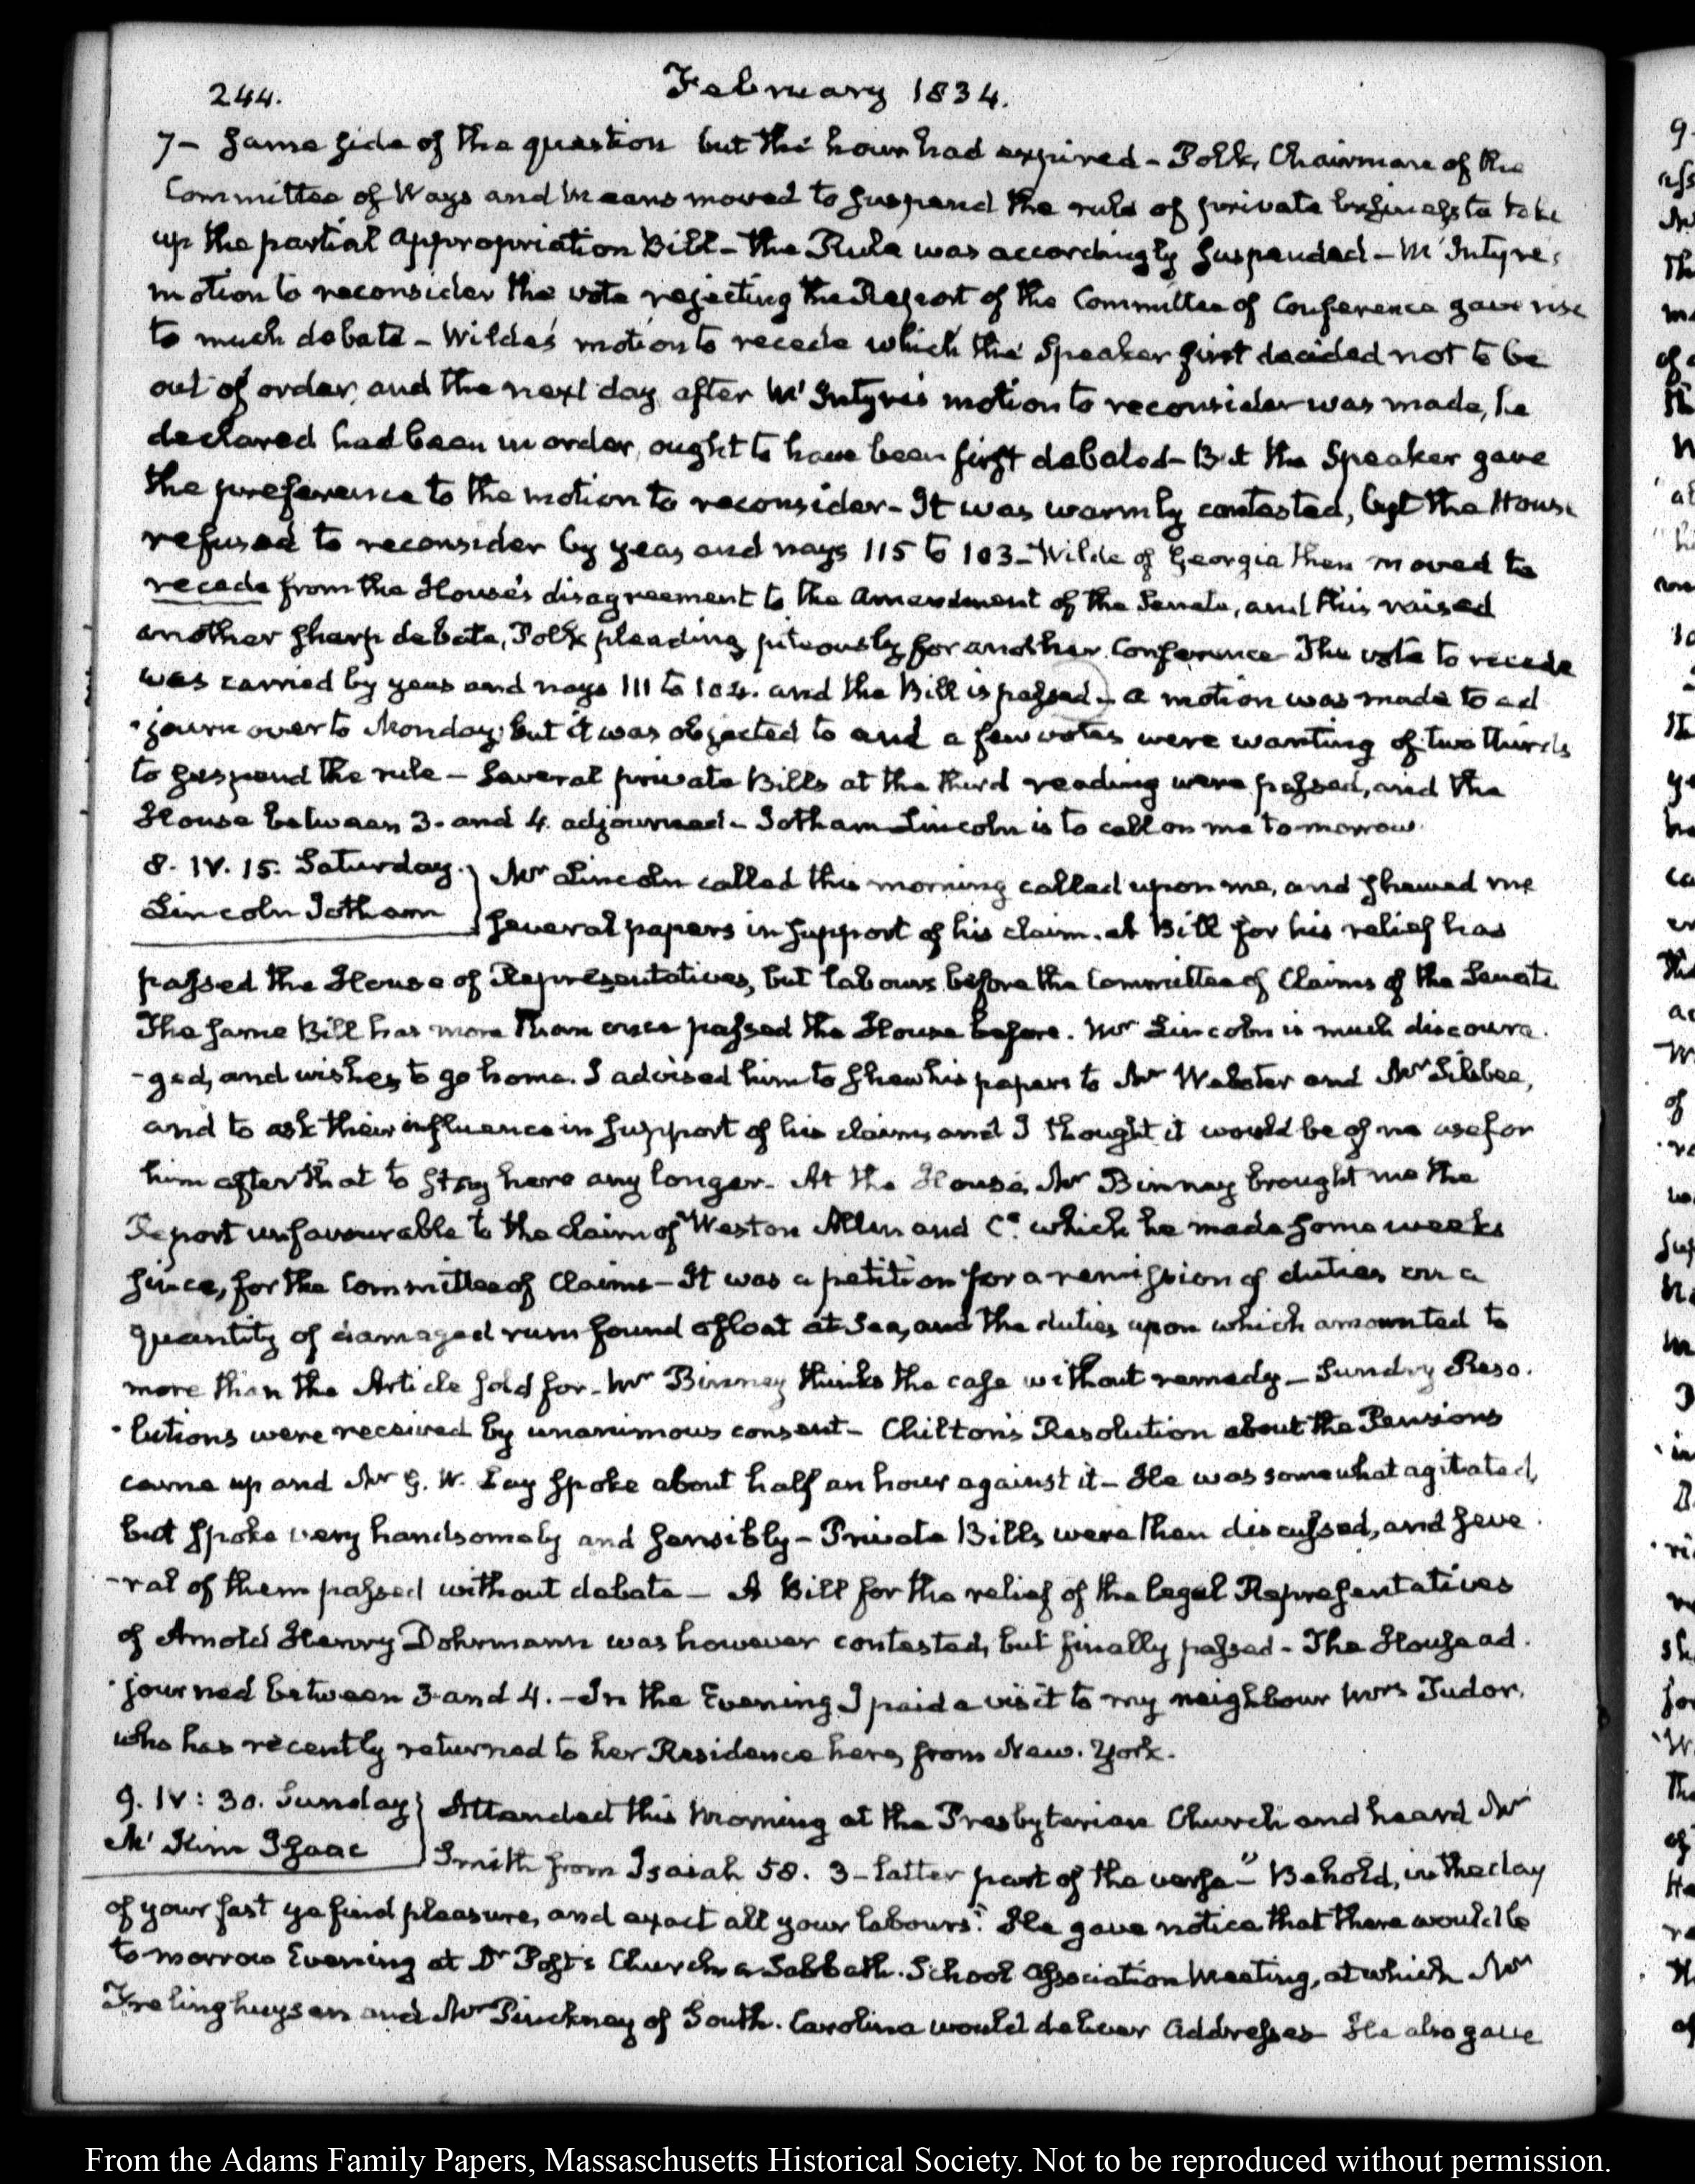 244.
February 1834.
7- same side of the question but the hour had expired - Polk, Chairman of the
Committee of Ways and Means moved to suspend the rule of private business to take
up the partial appropriation Bill - the Rule was accordingly suspended - McIntyre's
motion to reconsider the vote rejecting the Report of the Committee of Conference gave rise
to much debate - Wilde's motion to recede which the Speaker first decided not to be
out of order, and the next day after McIntyre's motion to reconsider was made, he
declared had been in order, ought to have been first debated - But the Speaker gave
the preference to the motion to reconsider - It was warmly contested, but the House
refused to reconsider by yeas and nays 115 to 103 - Wilde of Georgia then moved to
recede from the House's disagreement to the amendment of the Senate, and this raised
another sharp debate, Polk pleading piteously for another Conference The vote to recede
was carried by yeas and nays 111 to 104. and the Bill is passed - a motion was made to ad
-journ over to Monday; but it was objected to and a few votes were wanting of two thirds
to suspend the rule - Several private Bills at the third reading were passed, and the
House between 3. and 4. adjourned - Jotham Lincoln is to call on me to-morrow.
8. IV. 15. Saturday.
Lincoln Jotham
Mr Lincoln called this morning called upon me, and shewed me
several papers in support of his claim. A Bill for his relief has
passed the House of Representatives, but labours before the Committee of Claims of the Senate
The same Bill has more than once passed the House before. Mr Lincoln is much discoura-
-ged, and wishes to go home. I advised him to shew his papers to Mr Webster and Mr Silsbee,
and to ask their influence in support of his claim, and I thought it would be of no use for
him after that to stay here any longer - At the House, Mr Binney brought me the
Report unfavourable to the claim of Weston Allen and Co. which he made some weeks
since, for the Committee of Claims - It was a petition for a remission of duties on a
quantity of damaged rum found afloat at Sea, and the duties upon which amounted to
more than the Article sold for - Mr Binney thinks the case without remedy - Sundry Reso-
-lutions were received by unanimous consent - Chilton's Resolution about the Pensions
came up and Mr G. W. Lay spoke about half an hour against it - He was somewhat agitated,
but spoke very handsomely and sensibly - Private Bills were then discussed, and seve-
-ral of them passed without debate - A Bill for the relief of the legal Representatives
of Arnold Henry Dohrmann was however contested, but finally passed - The House ad-
-journed between 3 and 4. - In the Evening I paid a visit to my neighbour Mrs Tudor,
who has recently returned to her Residence here, from New-York.
9. IV: 30. Sunday
McKim Isaac
Attended this Morning at the Presbyterian Church and heard Mr
Smith from Isaiah 58. 3 - latter part of the verse - "Behold, in the day
of your fast ye find pleasure, and exact all your labours." He gave notice that there would be
to-morrow Evening at Dr Post's Church a Sabbath-School Association Meeting, at which Mr
Frelinghuysen and Mr Pinckney of South-Carolina would deliver Addresses He also gave
From the Adams Family Papers, Massachusetts Historical Society. Not to be reproduced without permission.